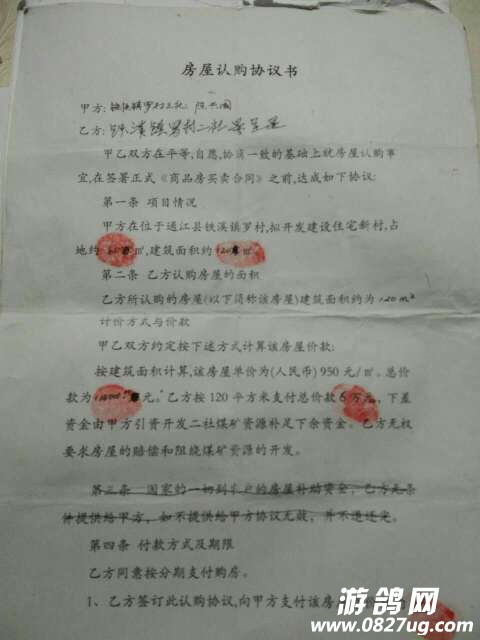 房屋认购协议书
甲方:
乙方:
甲乙双方在平等,自愿,协商一致的基础上就房屋认购事
宜,在签署正式《商品房买卖合同》之前,达成如下协议:
第一条 项目情况
甲方在位于通江县铁溪镇罗村,拟开发建设住宅新村,占
地约 ㎡,建筑面积约 ㎡.
第二条 乙方认购房屋的面积
乙方所认购的房屋(以下简称该房屋)建筑面积约为 120m²
计价方式与价款
甲乙双方约定按下述方式计算该房屋价款:
按建筑面积计算,该房屋单价为(人民币) 950 元/㎡。总价
款为 元。乙方按 120 平方米支付总价款 6 万元,下差
资金由甲方引资开发二社煤矿资源补足下余资金。乙方无权
要求房屋的赔偿和阻绕煤矿资源的开发。
第三条 国家的一切到 户的房屋补助资金,乙方无条
件提供给甲方,如不提供给甲方协议无效,并不退还
第四条 付款方式及期限
乙方同意按分期支付购房。
1、乙方签订此认购协议,向甲方支付该房
游鸽网
www.0827ug.com